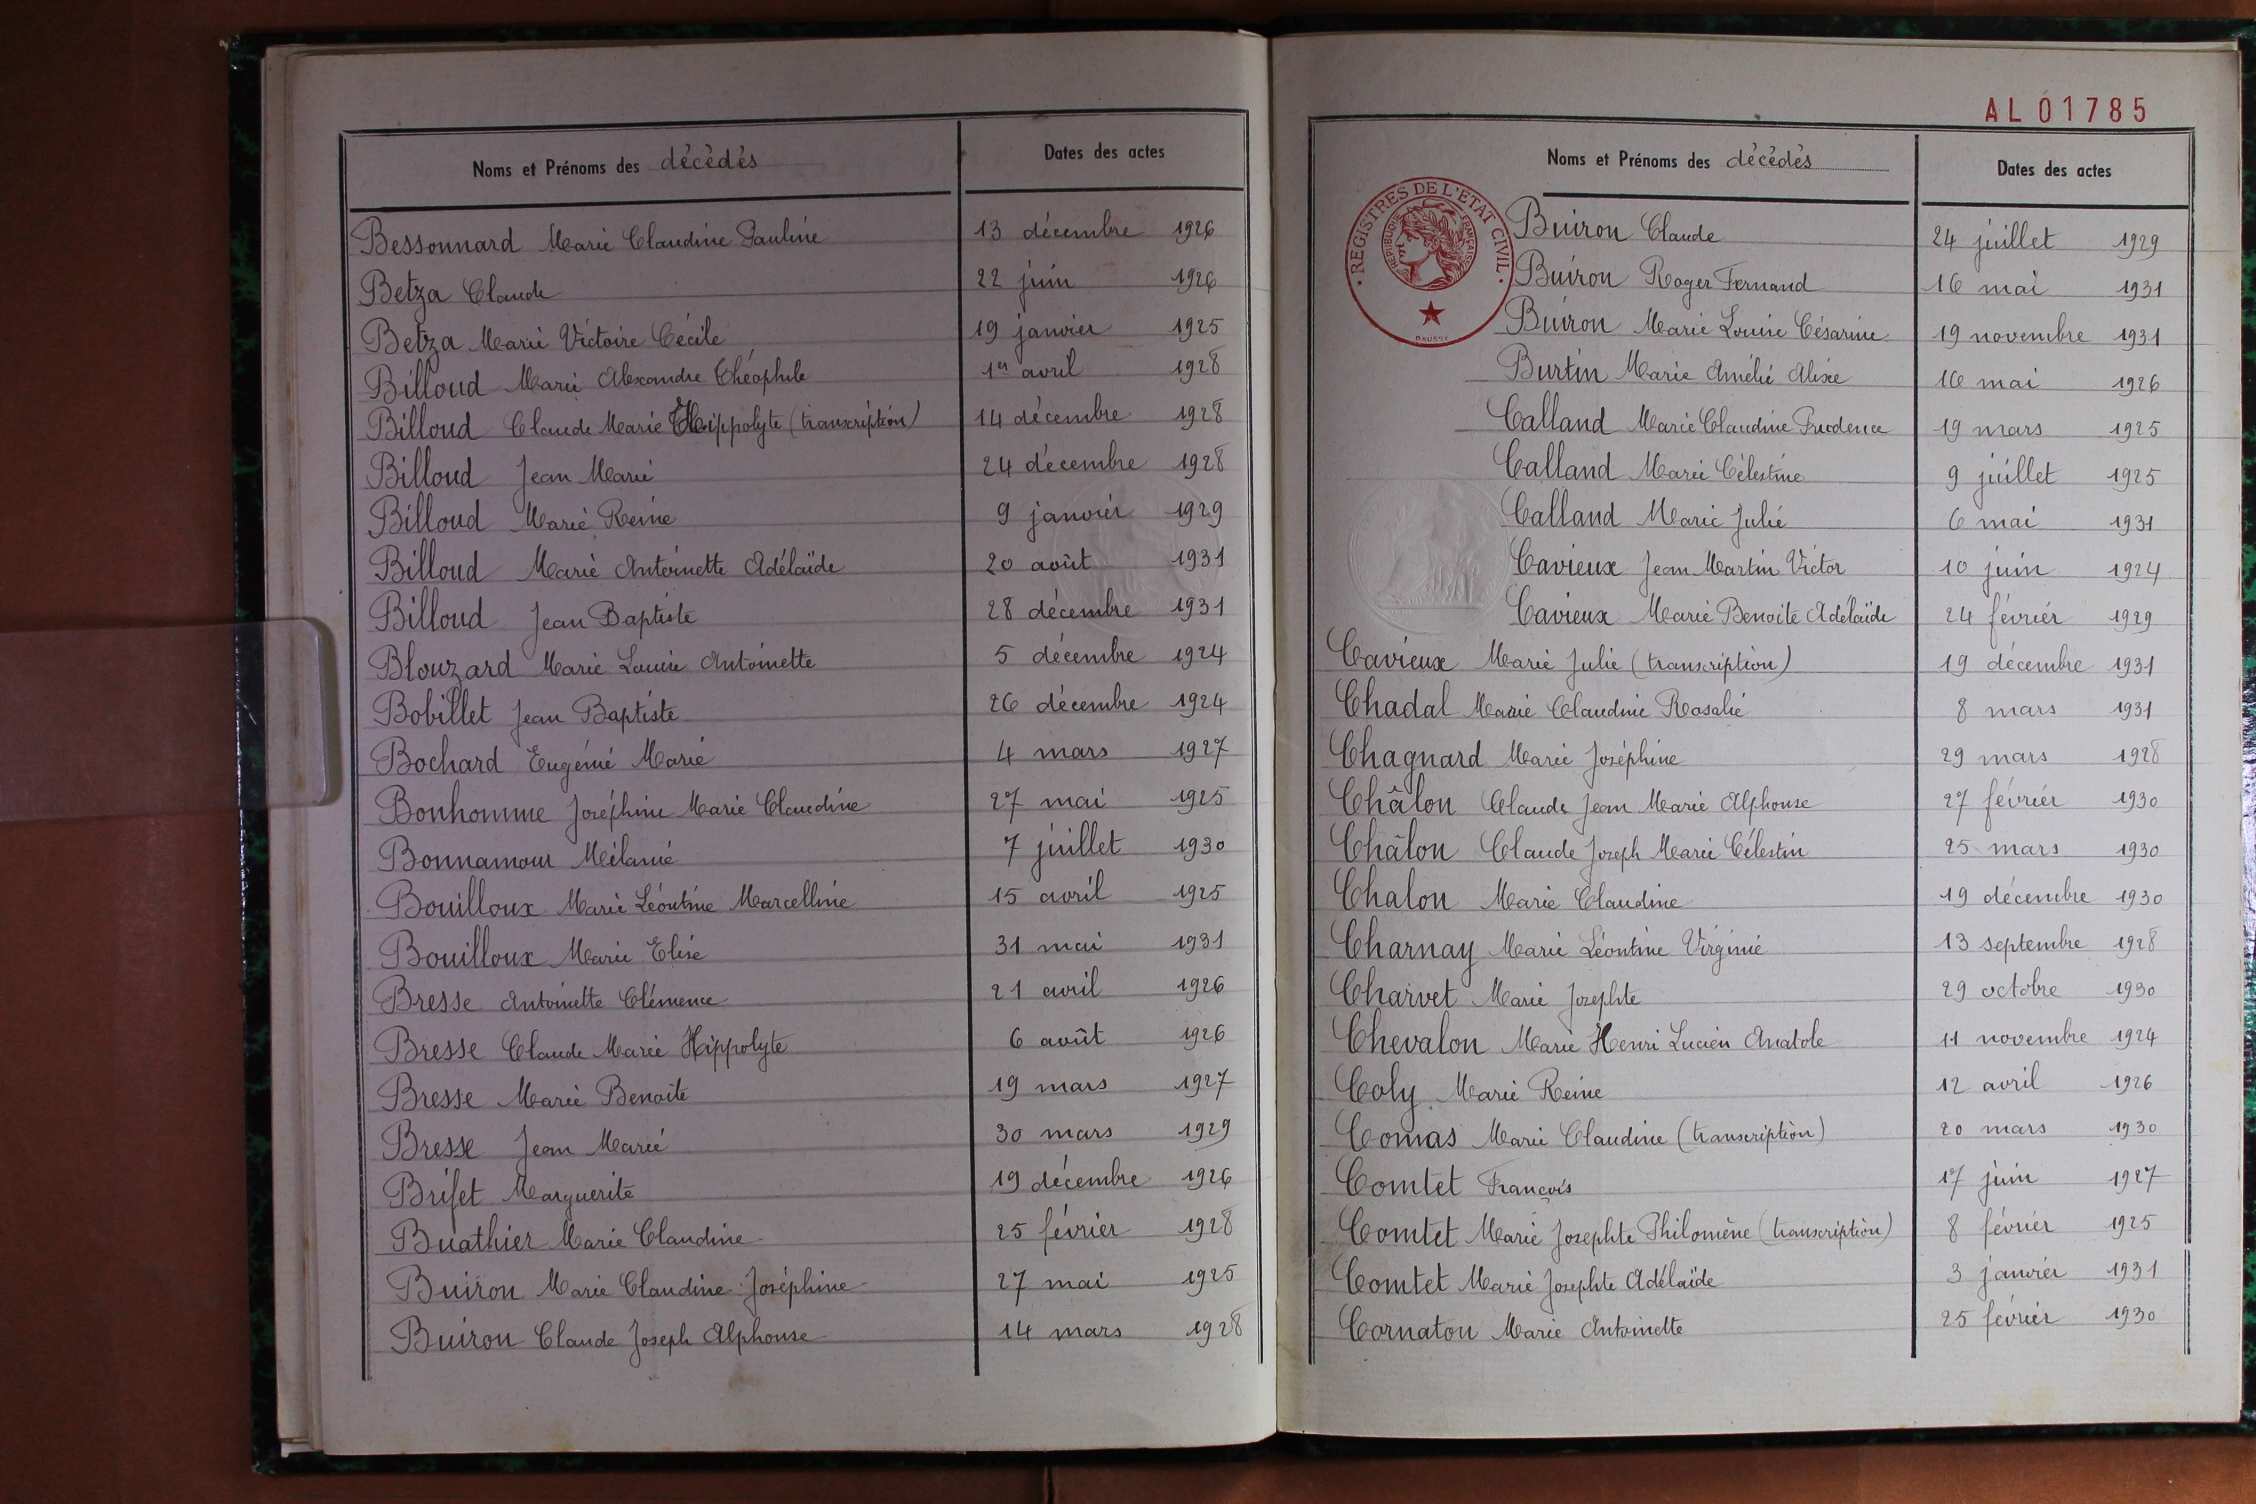 Noms et Prénoms des décédés Dates des actes
Bessonnard Marie Claudine Pauline 13 décembre 1926
Betza Claude 22 juin 1926
Betza Marie Victoire Cécile 19 janvier 1925
Billoud Marie Alexandre Théophile 1er avril 1928
Billoud Claude Marie Hippolyte (transcription) 14 décembre 1928
Billoud Jean Marie 24 décembre 1928
Billoud Marie Reine 9 janvier 1929
Billoud Marie Antoinette Adélaïde 20 août 1931
Billoud Jean Baptiste 28 décembre 1931
Blouzard Marie Louise Antoinette 5 décembre 1924
Bobillet Jean Baptiste 26 décembre 1924
Bochard Eugénie Marie 4 mars 1927
Bonhomme Joséphine Marie Claudine 27 mai 1925
Bonnamour Mélanie 7 juillet 1930
Bouilloux Marie Léontine Marcelline 15 avril 1925
Bouilloux Marie Elise 31 mai 1931
Bresse Antoinette Clémence 21 avril 1926
Bresse Claude Marie Hippolyte 6 août 1926
Bresse Marie Benoite 19 mars 1927
Bresse Jean Marie 30 mars 1929
Brifet Marguerite 19 décembre 1926
Buathier Marie Claudine 25 février 1928
Buiron Marie Claudine Joséphine 27 mai 1925
Buiron Claude Joseph Alphonse 14 mars 1928
AL01785
Noms et Prénoms des décédés Dates des actes
REGISTRES DE L'ÉTAT CIVIL
RÉPUBLIQUE FRANÇAISE
Buiron Claude 24 juillet 1929
Buiron Roger Fernand 16 mai 1931
Buiron Marie Louise Césarine 19 novembre 1931
Burtin Marie Amélie Alixe 16 mai 1926
Calland Marie Claudine Prudence 19 mars 1925
Calland Marie Célestine 9 juillet 1925
Calland Marie Julie 6 mai 1931
Cavieux Jean Martin Victor 10 juin 1924
Cavieux Marie Benoite Adélaïde 24 février 1929
Cavieux Marie Julie (transcription) 19 décembre 1931
Chadal Marie Claudine Rosalie 8 mars 1931
Chagnard Marie Joséphine 29 mars 1928
Châlon Claude Jean Marie Alphonse 27 février 1930
Châlon Claude Joseph Marie Célestin 25 mars 1930
Chalon Marie Claudine 19 décembre 1930
Charnay Marie Léontine Virginie 13 septembre 1928
Charvet Marie Josephte 29 octobre 1930
Chevalon Marie Henri Lucien Anatole 11 novembre 1924
Coly Marie Reine 12 avril 1926
Comas Marie Claudine (transcription) 20 mars 1930
Comtet François 17 juin 1927
Comtet Marie Josephte Philomène (transcription) 8 février 1925
Comtet Marie Josephte Adélaïde 3 janvier 1931
Cornaton Marie Antoinette 25 février 1930